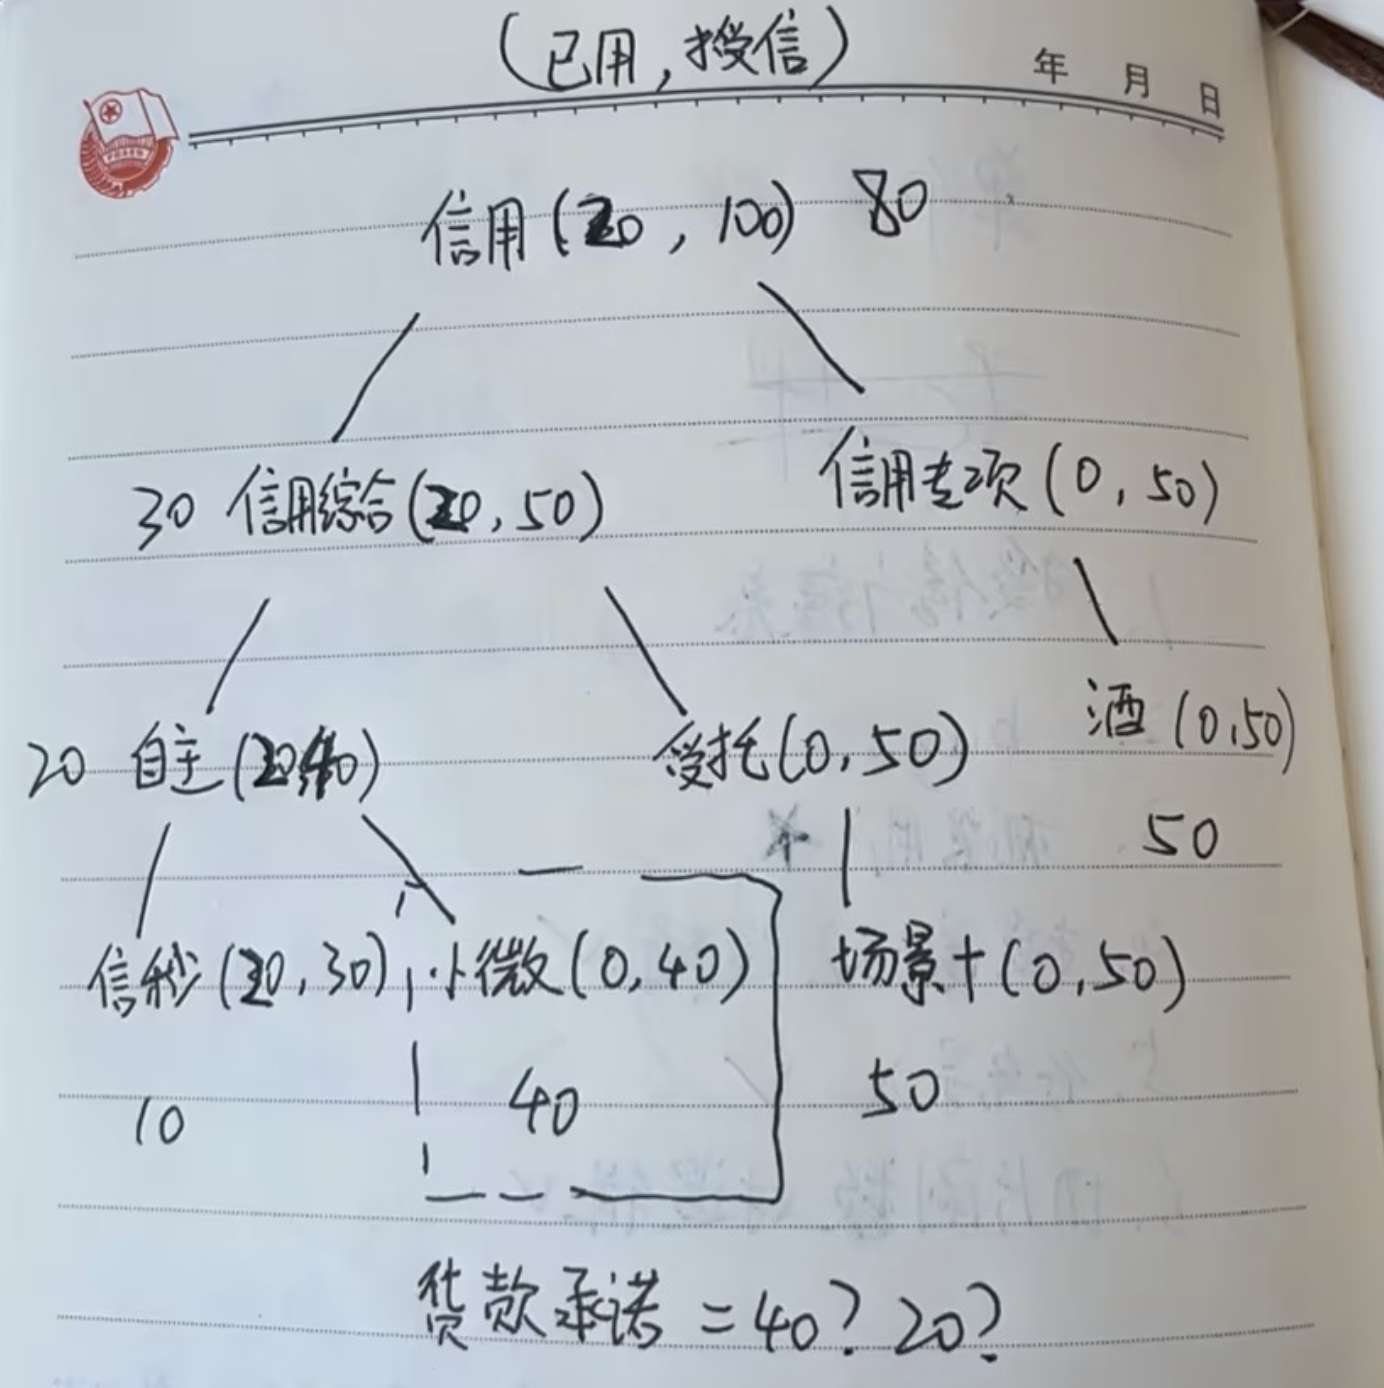 (已用,授信)
年 月 日
信用(20,100) 80
30 信用综合(20,50)
信用专项(0,50)
20 自主(20,40)
受托(0,50)
酒(0,50)
50
信秒(20,30)
小微(0,40)
场景+(0,50)
10
40
50
贷款承诺=40?20?